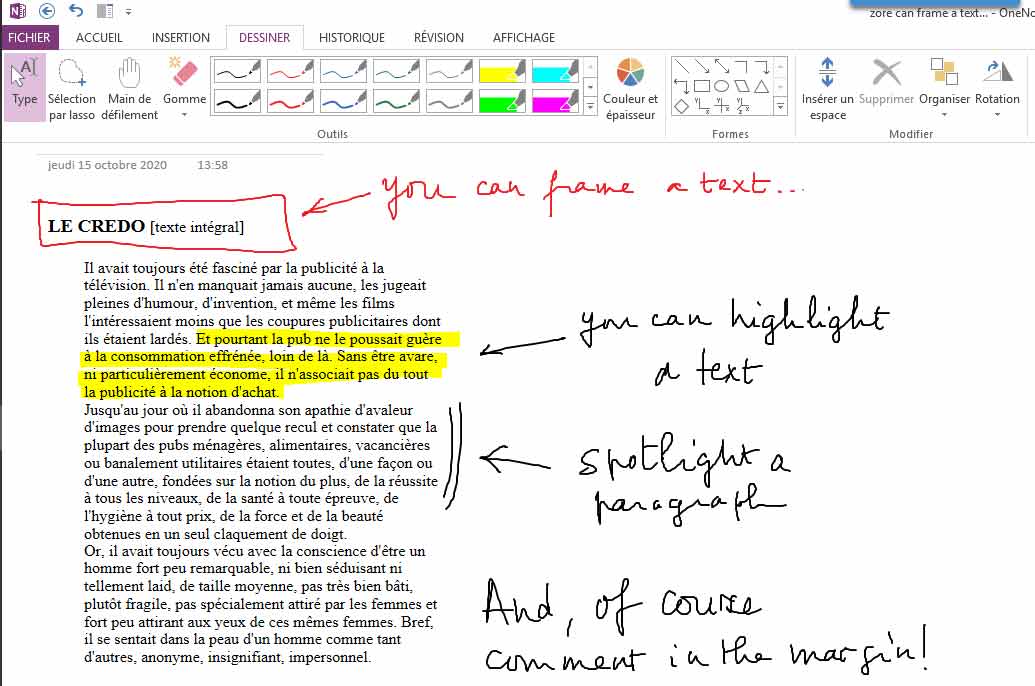 zore can frame a text... - OneNo
FICHIER ACCUEIL INSERTION DESSINER HISTORIQUE RÉVISION AFFICHAGE
Type
Sélection par lasso
Main de défilement
Gomme
Couleur et épaisseur
Insérer un espace
Supprimer
Organiser
Rotation
Outils Formes Modifier
jeudi 15 octobre 2020 13:58
you can frame a text...
LE CREDO [texte intégral]
Il avait toujours été fasciné par la publicité à la
télévision. Il n'en manquait jamais aucune, les jugeait
pleines d'humour, d'invention, et même les films
l'intéressaient moins que les coupures publicitaires dont
ils étaient lardés. Et pourtant la pub ne le poussait guère
à la consommation effrénée, loin de là. Sans être avare,
ni particulièrement économe, il n'associait pas du tout
la publicité à la notion d'achat.
Jusqu'au jour où il abandonna son apathie d'avaleur
d'images pour prendre quelque recul et constater que la
plupart des pubs ménagères, alimentaires, vacancières
ou banalement utilitaires étaient toutes, d'une façon ou
d'une autre, fondées sur la notion du plus, de la réussite
à tous les niveaux, de la santé à toute épreuve, de
l'hygiène à tout prix, de la force et de la beauté
obtenues en un seul claquement de doigt.
Or, il avait toujours vécu avec la conscience d'être un
homme fort peu remarquable, ni bien séduisant ni
tellement laid, de taille moyenne, pas très bien bâti,
plutôt fragile, pas spécialement attiré par les femmes et
fort peu attirant aux yeux de ces mêmes femmes. Bref,
il se sentait dans la peau d'un homme comme tant
d'autres, anonyme, insignifiant, impersonnel.
you can highlight
a text
spotlight a
paragraph
And, of course
comment in the margin!